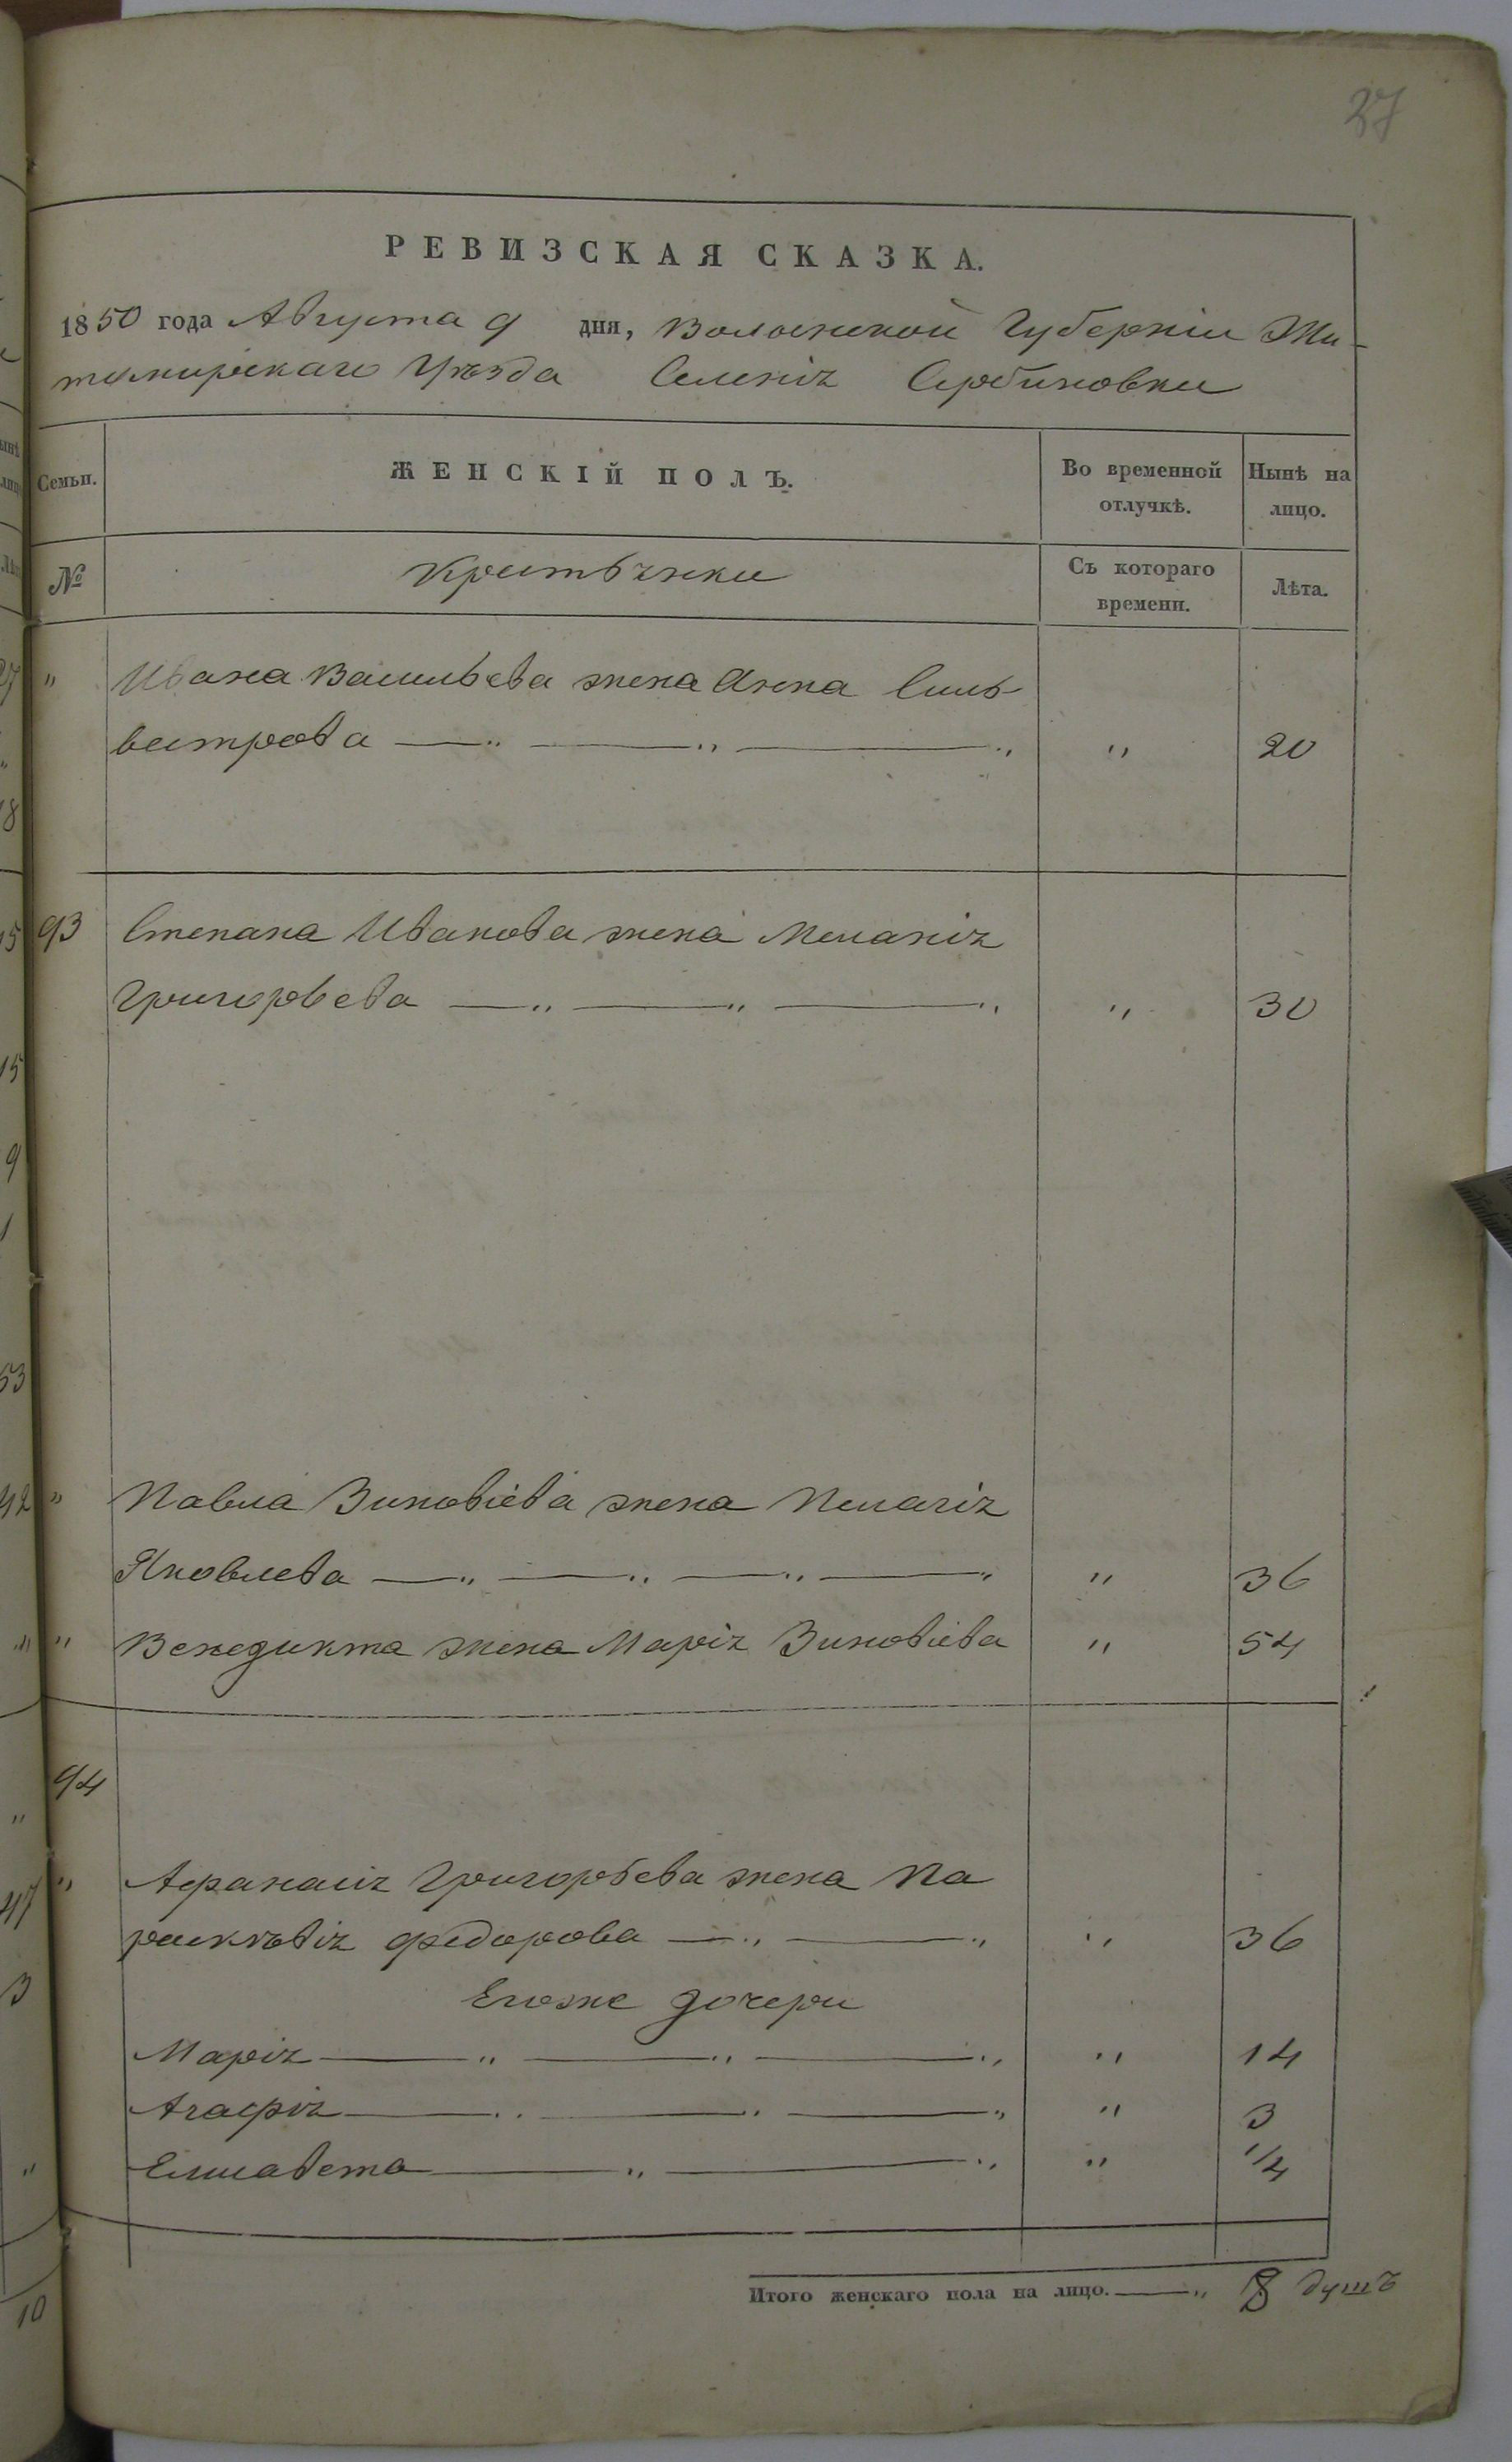 27
РЕВИЗСКАЯ СКАЗКА.
1850 года Августа 9 дня, Волынской Губерніи Жи-
томирскаго Уѣзда Селенія Сербиновки
Семьи. ЖЕНСКІЙ ПОЛЪ. Во временной отлучкѣ. Нынѣ на лицо.
№ Крестьянки Съ котораго времени. Лѣта.
" Ивана Васильева жена Анна Силь-
вестрова — " — " — " " 20
93 Степана Иванова жена Меланія
Григорьева — " — " — " " 30
" Павла Зиновіева жена Пелагія
Яковлева — " — " — " — " " 36
" Венедикта жена Марія Зиновіева " 54
94
" Афанасія Григорьева жена Па
расковія Федорова — " — " " 36
Егоже дочери
Марія — " — " — " " 14
Агафія — " — " — " " 3
Елисавета — " — " " 1/4
Итого женскаго пола на лицо. — " 8 душъ